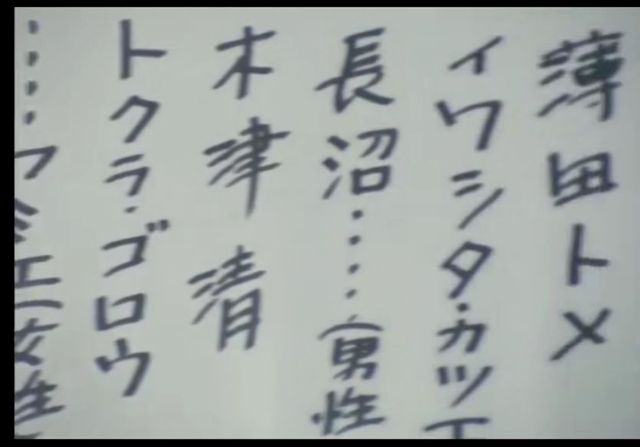 薄田トメ
イワシタ・カツエ
長沼・・・・(男性
木津清
トクラ・ゴロウ
・・・・フミエ(女性